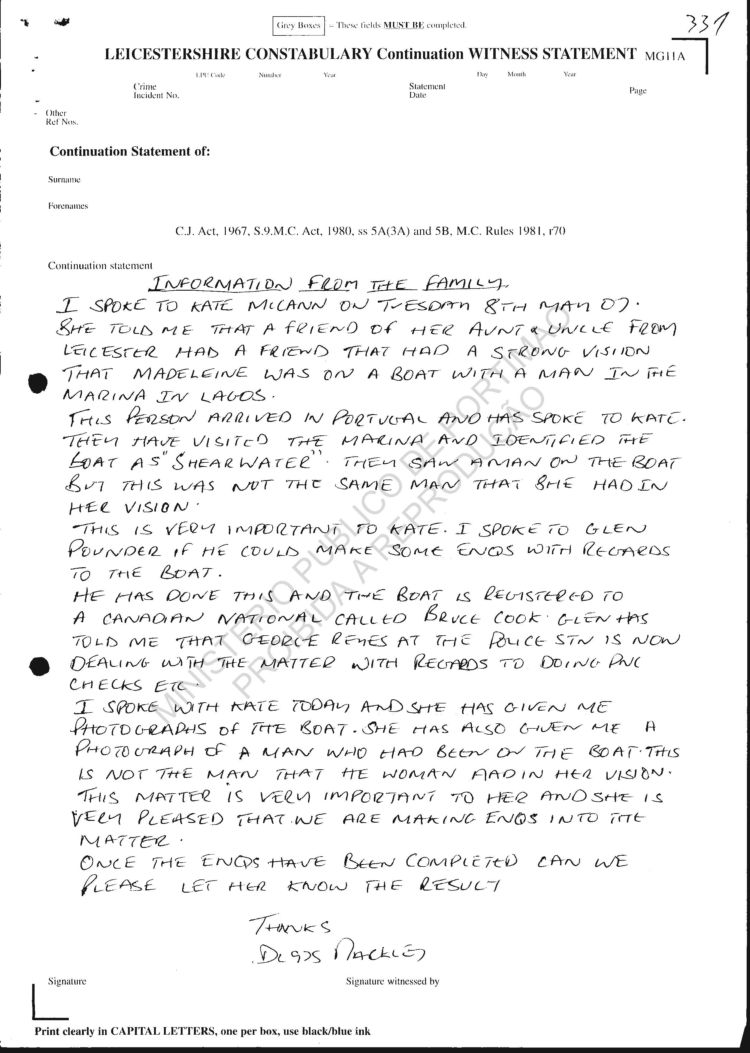 Grey Boxes – These fields MUST BE completed.
331
LEICESTERSHIRE CONSTABULARY Continuation WITNESS STATEMENT MG11A
LPU Code Number Year Day Month Year
Crime Statement
Incident No. Date Page
Other
Ref Nos.
Continuation Statement of:
Surname
Forenames
C.J. Act, 1967, S.9.M.C. Act, 1980, ss 5A(3A) and 5B, M.C. Rules 1981, r70
Continuation statement
INFORMATION FROM THE FAMILY.
I SPOKE TO KATE MCCANN ON TUESDAY 8TH MAY 07.
SHE TOLD ME THAT A FRIEND OF HER AUNT & UNCLE FROM
LEICESTER HAD A FRIEND THAT HAD A STRONG VISIION
THAT MADELEINE WAS ON A BOAT WITH A MAN IN THE
MARINA IN LAGOS.
THIS PERSON ARRIVED IN PORTUGAL AND HAS SPOKE TO KATE.
THEY HAVE VISITED THE MARINA AND IDENTIFIED THE
BOAT AS "SHEARWATER". THEY SAW A MAN ON THE BOAT
BUT THIS WAS NOT THE SAME MAN THAT SHE HAD IN
HER VISION.
THIS IS VERY IMPORTANT TO KATE. I SPOKE TO GLEN
POUNDER IF HE COULD MAKE SOME ENQS WITH REGARDS
TO THE BOAT.
HE HAS DONE THIS AND THE BOAT IS REGISTERED TO
A CANADIAN NATIONAL CALLED BRUCE COOK. GLEN HAS
TOLD ME THAT GEORGE REYES AT THE POLICE STN IS NOW
DEALING WITH THE MATTER WITH REGARDS TO DOING PNC
CHECKS ETC.
I SPOKE WITH KATE TODAY AND SHE HAS GIVEN ME
PHOTOGRAPHS OF THE BOAT. SHE HAS ALSO GIVEN ME A
PHOTOGRAPH OF A MAN WHO HAD BEEN ON THE BOAT. THIS
IS NOT THE MAN THAT HE WOMAN HAD IN HER VISION.
THIS MATTER IS VERY IMPORTANT TO HER AND SHE IS
VERY PLEASED THAT WE ARE MAKING ENQS INTO THE
MATTER.
ONCE THE ENQS HAVE BEEN COMPLETED CAN WE
PLEASE LET HER KNOW THE RESULT
THANKS
MINISTERIO PUBLICO DE PORTIMAO
PROIBIDA A REPRODUÇÃO
Signature Signature witnessed by
Print clearly in CAPITAL LETTERS, one per box, use black/blue ink